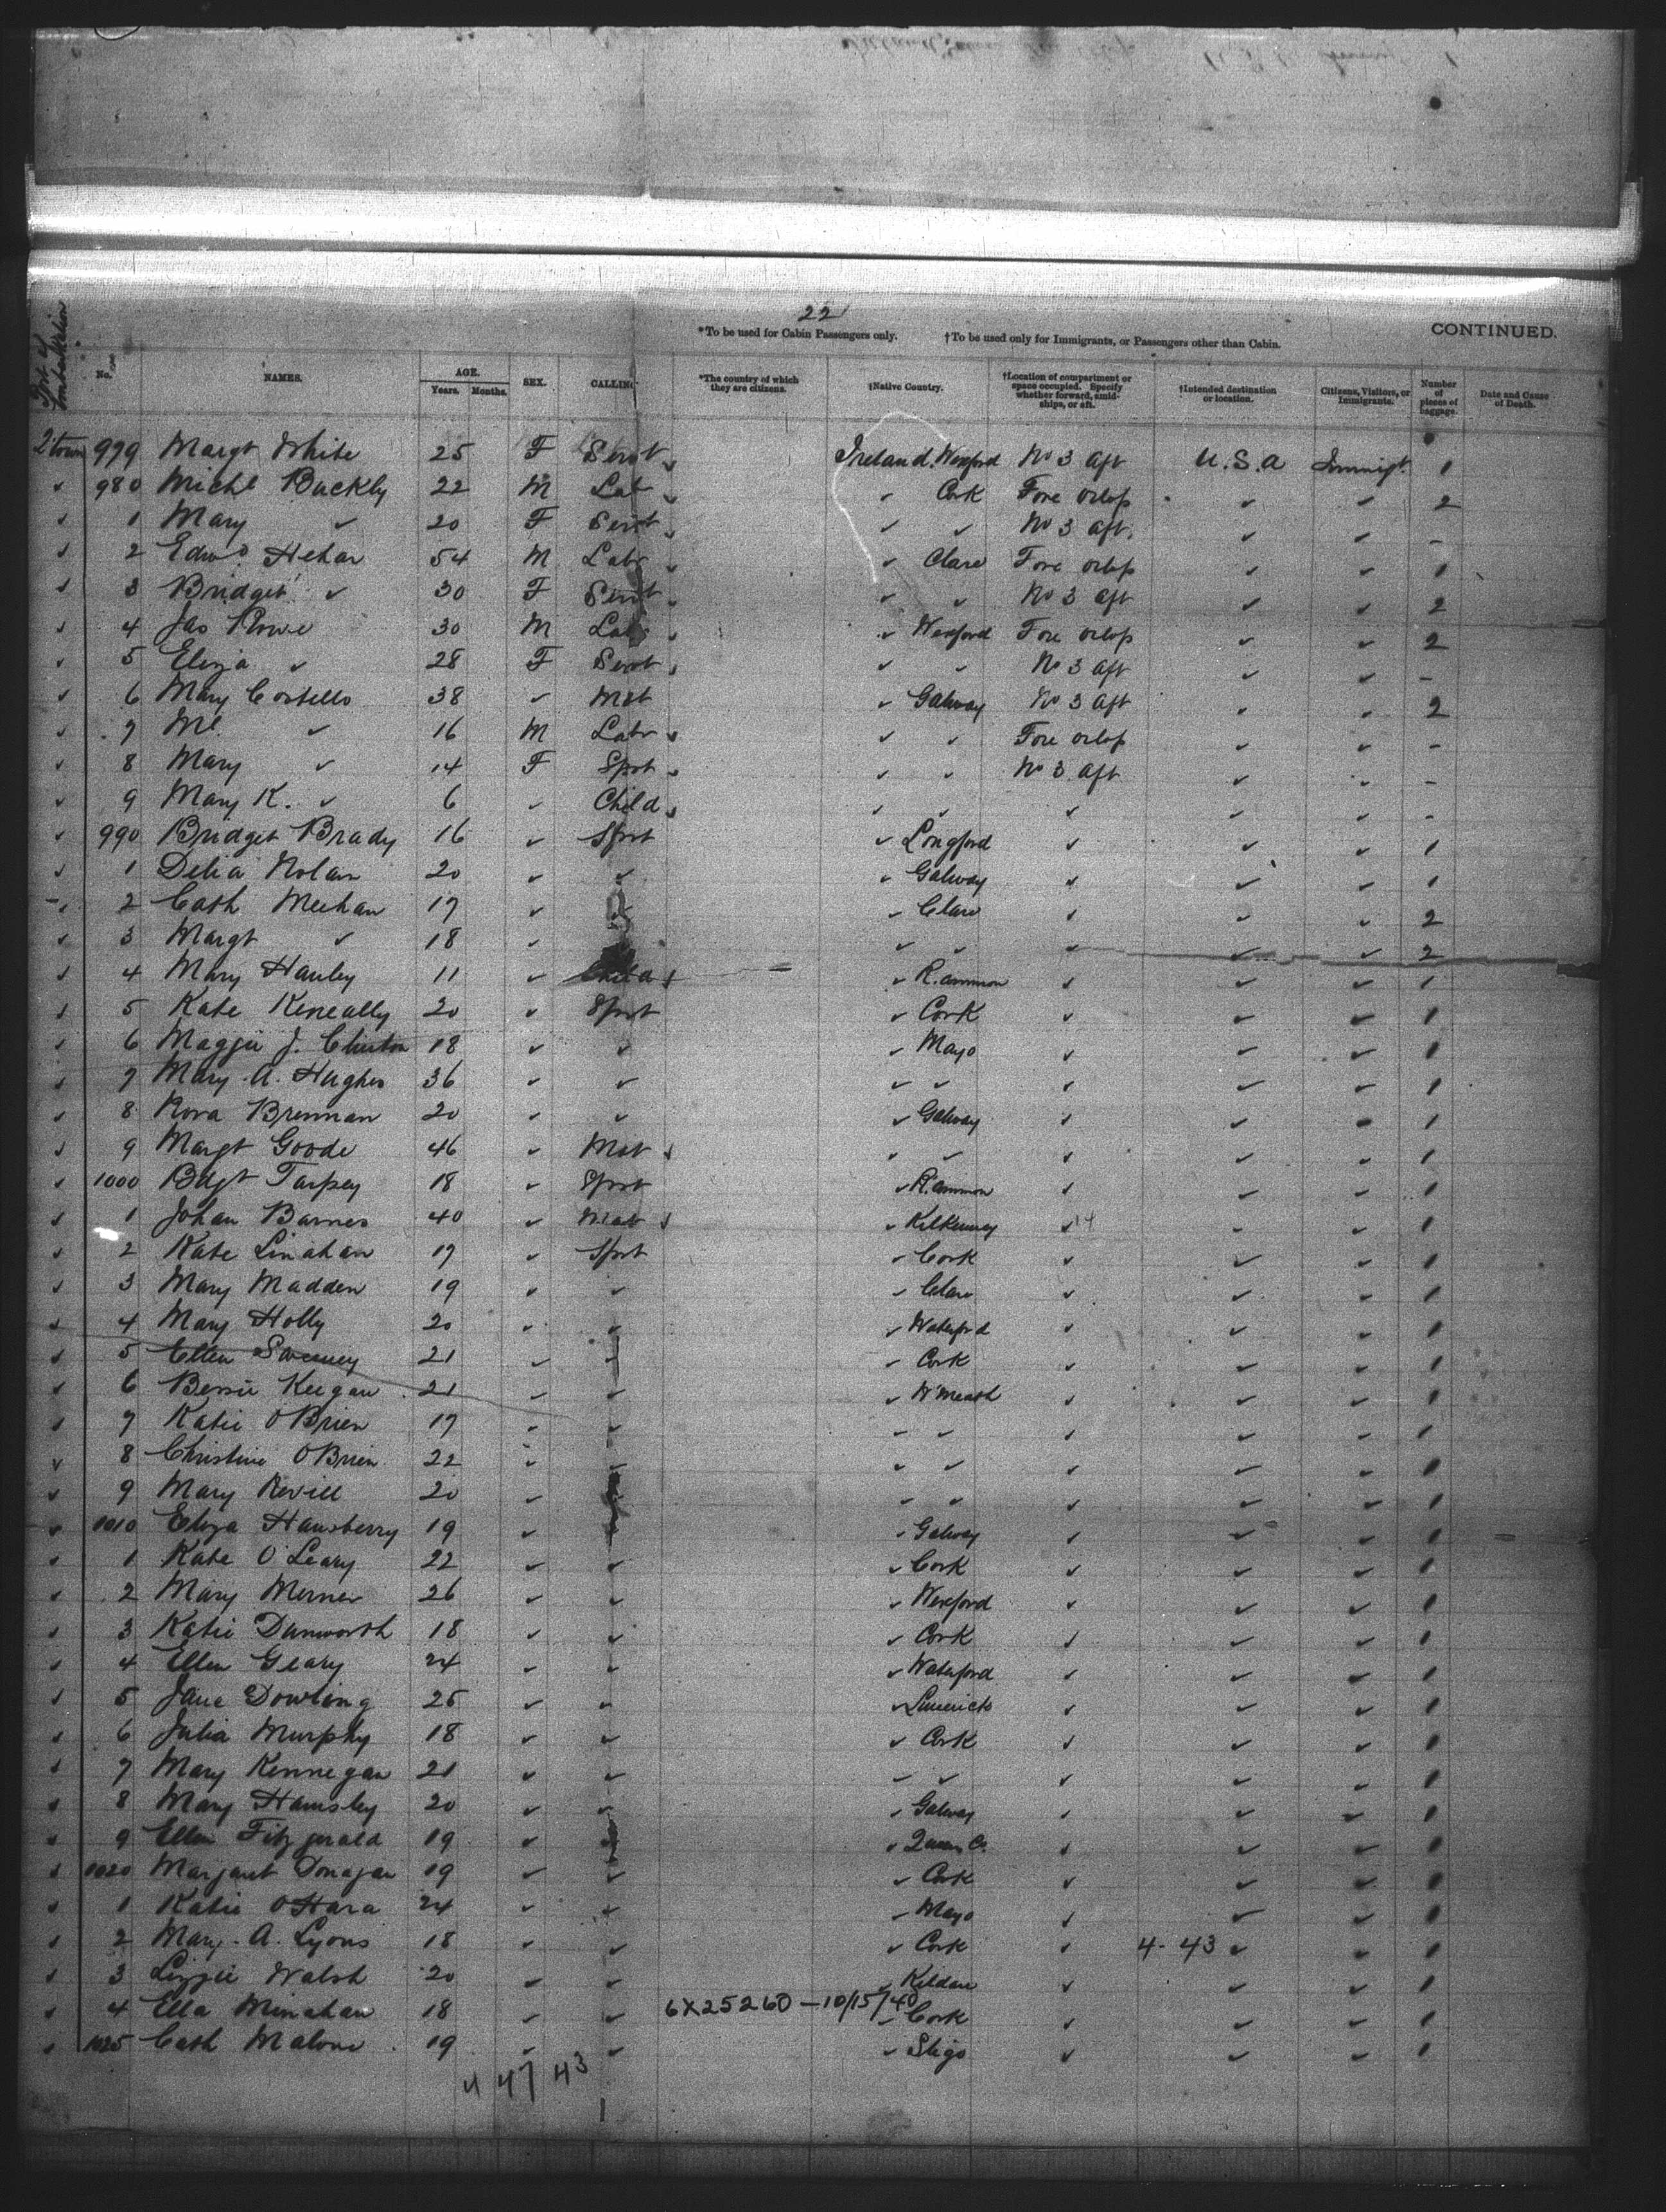 22
*To be used for Cabin Passengers only. †To be used only for Immigrants, or Passengers other than Cabin. CONTINUED.
Port of Embarkation No. NAMES. AGE. Years. Months. SEX. CALLING *The country of which they are citizens. †Native Country. †Location of compartment or space occupied. Specify whether forward, amidships, or aft. †Intended destination or location. Citizens, Visitors, or Immigrants. Number of pieces of baggage. Date and Cause of Death.
2'town 979 Margt White 25 F Servt Ireland. Wexford No 3 aft U.S.a Immigt. 1
✓ 980 Michl Buckly 22 M Lab ✓ Cork Fore orlop ✓ ✓ 2
✓ 1 Mary ✓ 20 F Servt ✓ ✓ No 3 aft. ✓ ✓ -
✓ 2 Edwd Hehar 54 M Labr ✓ Clare Fore orlop ✓ ✓ 1
✓ 3 Bridget ✓ 30 F Servt ✓ ✓ No 3 aft ✓ ✓ 2
✓ 4 Jas Rowe 30 M Labr ✓ Wexford Fore orlop ✓ ✓ 2
✓ 5 Eliza ✓ 28 F Servt ✓ ✓ No 3 aft ✓ ✓ -
✓ 6 Mary Costello 38 ✓ Mat ✓ Galway No 3 aft ✓ ✓ 2
✓ 7 Ml. ✓ 16 M Labr ✓ ✓ Fore orlop ✓ ✓ -
✓ 8 Mary ✓ 14 F Spst ✓ ✓ No 3 aft ✓ ✓ -
✓ 9 Mary K. ✓ 6 ✓ Child ✓ ✓ ✓ ✓ ✓ -
✓ 990 Bridget Brady 16 ✓ Spst ✓ Longford ✓ ✓ ✓ 1
✓ 1 Delia Nolan 20 ✓ ✓ ✓ Galway ✓ ✓ ✓ 1
✓ 2 Cath Meehan 17 ✓ ✓ ✓ Clare ✓ ✓ ✓ 2
✓ 3 Margt ✓ 18 ✓ ✓ ✓ ✓ ✓ ✓ 2
✓ 4 Mary Hanley 11 ✓ Child ✓ R.ammon ✓ ✓ ✓ 1
✓ 5 Kate Keneally 20 ✓ Spst ✓ Cork ✓ ✓ ✓ 1
✓ 6 Maggie J. Clinton 18 ✓ ✓ ✓ Mayo ✓ ✓ ✓ 1
✓ 7 Mary. A. Hughes 36 ✓ ✓ ✓ ✓ ✓ ✓ ✓ 1
✓ 8 Nora Brennan 20 ✓ ✓ ✓ Galway ✓ ✓ ✓ 1
✓ 9 Margt Goode 46 ✓ Mat ✓ ✓ ✓ ✓ ✓ 1
✓ 1000 Bdgt Tarpey 18 ✓ Spst ✓ R.ammon ✓ ✓ ✓ 1
✓ 1 Johan Barnes 40 ✓ Mat ✓ Kilkenney ✓ 14 ✓ ✓ 1
✓ 2 Kate Linahan 17 ✓ Spst ✓ Cork ✓ ✓ ✓ 1
✓ 3 Mary Madden 19 ✓ ✓ ✓ Clare ✓ ✓ ✓ 1
✓ 4 Mary Holly 20 ✓ ✓ ✓ Waterford ✓ ✓ ✓ 1
✓ 5 Ellen Sweeney 21 ✓ ✓ ✓ Cork ✓ ✓ ✓ 1
✓ 6 Bessie Keegan 21 ✓ ✓ ✓ W'meath ✓ ✓ ✓ 1
✓ 7 Katie O'Brien 17 ✓ ✓ ✓ ✓ ✓ ✓ ✓ 1
✓ 8 Christine O'Brien 22 ✓ ✓ ✓ ✓ ✓ ✓ ✓ 1
✓ 9 Mary Revill 20 ✓ ✓ ✓ ✓ ✓ ✓ 1
✓ 1010 Eliza Hansberry 19 ✓ ✓ Galway ✓ ✓ ✓ 1
✓ 1 Kate O'Leary 22 ✓ ✓ ✓ Cork ✓ ✓ ✓ 1
✓ 2 Mary Merner 26 ✓ ✓ ✓ Wexford ✓ ✓ ✓ 1
✓ 3 Katie Dunworth 18 ✓ ✓ ✓ Cork ✓ ✓ ✓ 1
✓ 4 Ellen Geary 24 ✓ ✓ ✓ Waterford ✓ ✓ ✓ 1
✓ 5 Jane Dowling 25 ✓ ✓ ✓ Limerick ✓ ✓ ✓ 1
✓ 6 Julia Murphy 18 ✓ ✓ ✓ Cork ✓ ✓ ✓ 1
✓ 7 Mary Kennegan 21 ✓ ✓ ✓ ✓ ✓ ✓ ✓ 1
✓ 8 Mary Hamsley 20 ✓ ✓ ✓ Galway ✓ ✓ ✓ 1
✓ 9 Ellen Fitzgerald 19 ✓ ✓ ✓ Queens Co. ✓ ✓ ✓ 1
✓ 1020 Margaret Donagan 19 ✓ ✓ ✓ Cork ✓ ✓ ✓ 1
✓ 1 Katie O'Hara 24 ✓ ✓ ✓ Mayo ✓ ✓ ✓ 1
✓ 2 Mary. A. Lyons 18 ✓ ✓ ✓ Cork ✓ 4-43 ✓ ✓ 1
✓ 3 Lizzie Walsh 20 ✓ ✓ ✓ Kildare ✓ ✓ ✓ 1
✓ 4 Ella Minahan 18 ✓ ✓ 6X25260-10/15/40 ✓ Cork ✓ ✓ ✓ 1
✓ 1025 Cath Malone 19 ✓ ✓ ✓ Sligo ✓ ✓ ✓ 1
4 47 43